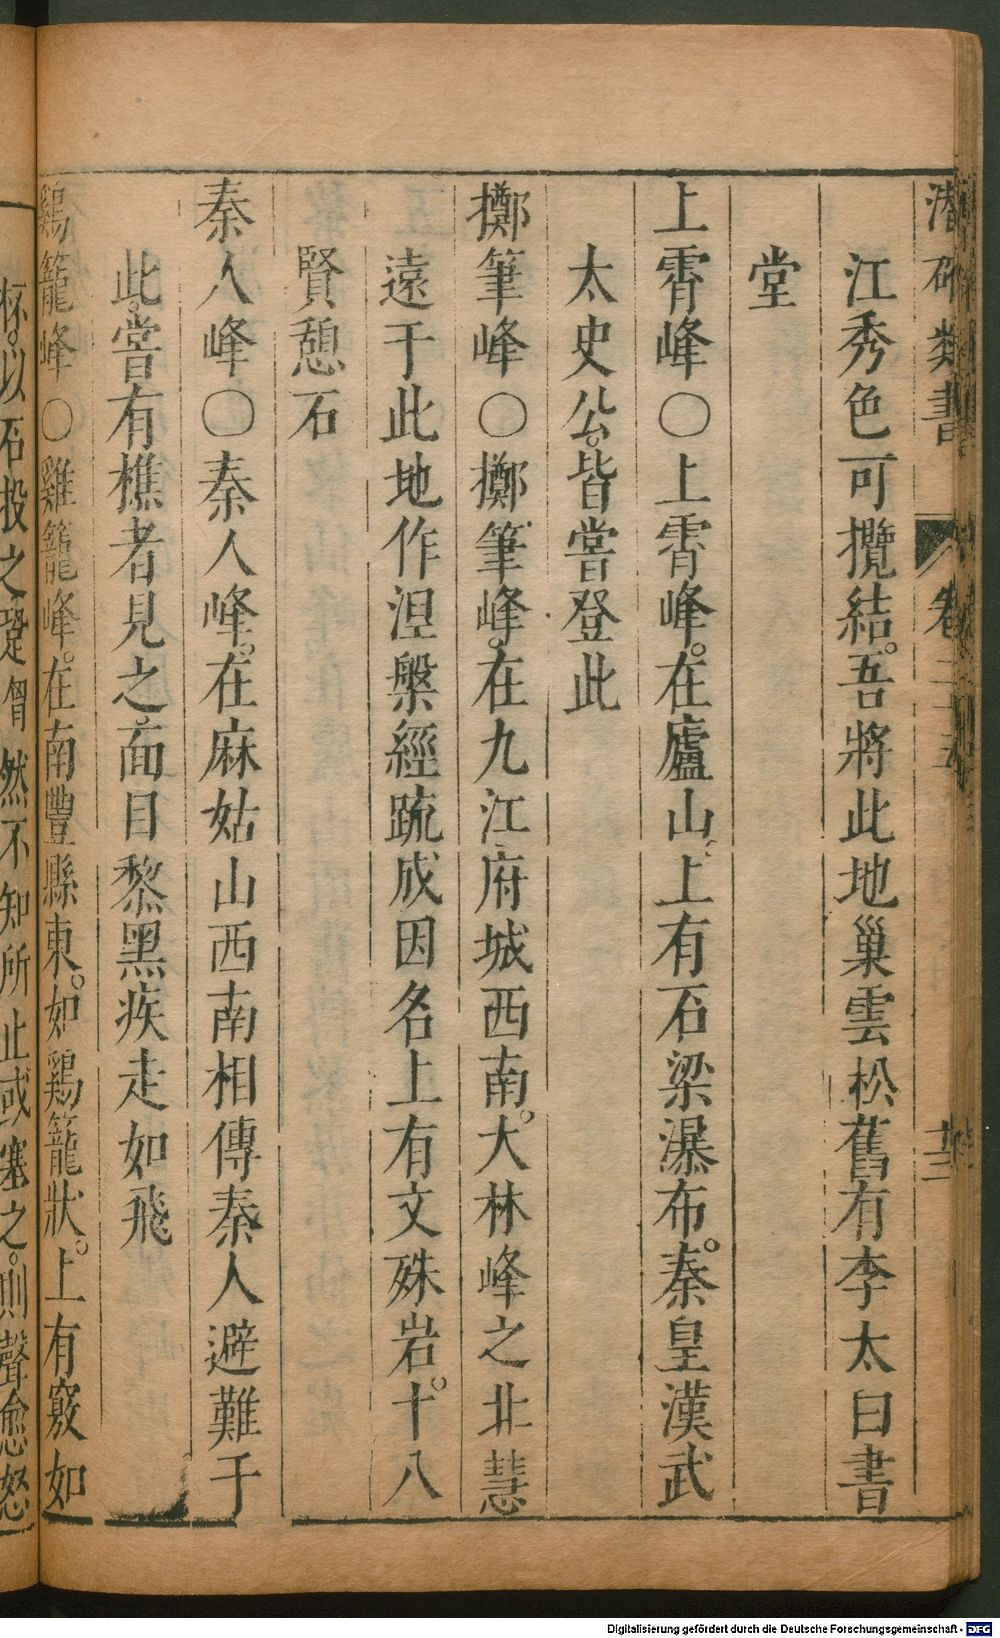 潛确類書 卷二十五 十二
江秀色可攬結。吾將此地巢雲松舊有李太白書
堂
上霄峰○上霄峰。在廬山。上有石梁瀑布。秦皇漢武
太史公。皆嘗登此
擲筆峰○擲筆峰。在九江府城西南。大林峰之北慧
遠于此地作涅槃經疏成因名上有文殊岩。十八
賢憩石
秦人峰○秦人峰。在麻姑山西南相傳秦人避難于
此。嘗有樵者見之面目黎黑疾走如飛
鷄籠峰○雞籠峰。在南豐縣東。如鷄籠狀。上有竅如
杯。以石投之蹵
然不知所止或塞之。則聲愈怒
Digitalisierung gefördert durch die Deutsche Forschungsgemeinschaft - DFG